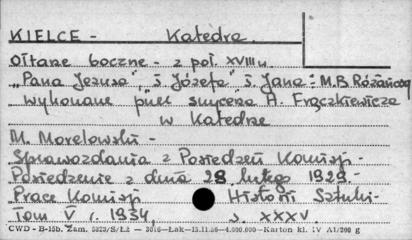 KIELCE - Katedra.
Ołtarze boczne - z poł. XVIII w.
„Pana Jezusa", ś Józefa" ś. Jana i M.B. Różańcowej
wykonane przez snycerza A. Frączkiewicza
w Katedrze
M. Morelowski -
Sprawozdania z Posiedzeń Komisji -
Posiedzenie z dnia 28 lutego 1929 -
Prace Komisji Historii Sztuki -
Tom V r. 1934, s. XXXV.
CWD - B-15b. Zam. 5323/S/Łż — 3016—Łak—15.11.56—4.000.000—Karton kl. IV A1/200 g